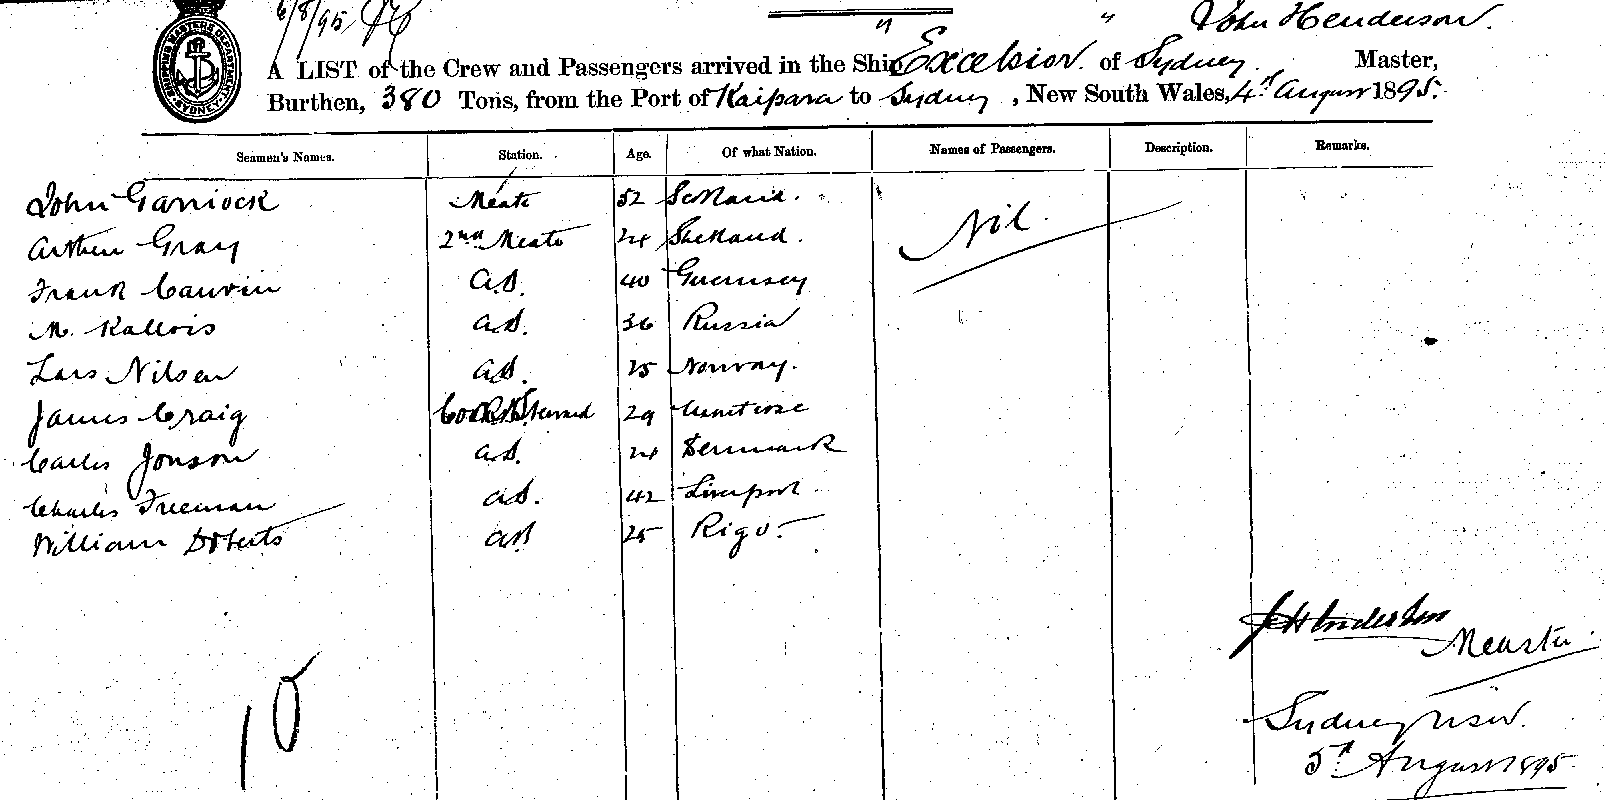 6/8/95
" " John Henderson.
A LIST of the Crew and Passengers arrived in the Ship Excelsior of Sydney. Master,
Burthen, 380 Tons, from the Port of Kaipara to Sydney, New South Wales, 4th August 1895.
Seamen's Names. Station. Age. Of what Nation. Names of Passengers. Description. Remarks.
John Garriock Meate 52 Scotland. Nil.
Arthur Gray 2nd Meate 24 Shetland.
Frank Cauvin A.B. 40 Guernsey
M. Kallois A.B. 36 Russia
Lars Nilsen A.B. 25 Norway.
James Craig Cook & Steward 29
Carles Jonson A.B. 24 Denmark
Charles Freeman A.B. 42 Liverpool
William A.B. 25 Riga.
J Henderson
Measter
10
Sydney NSW.
5th August 1895